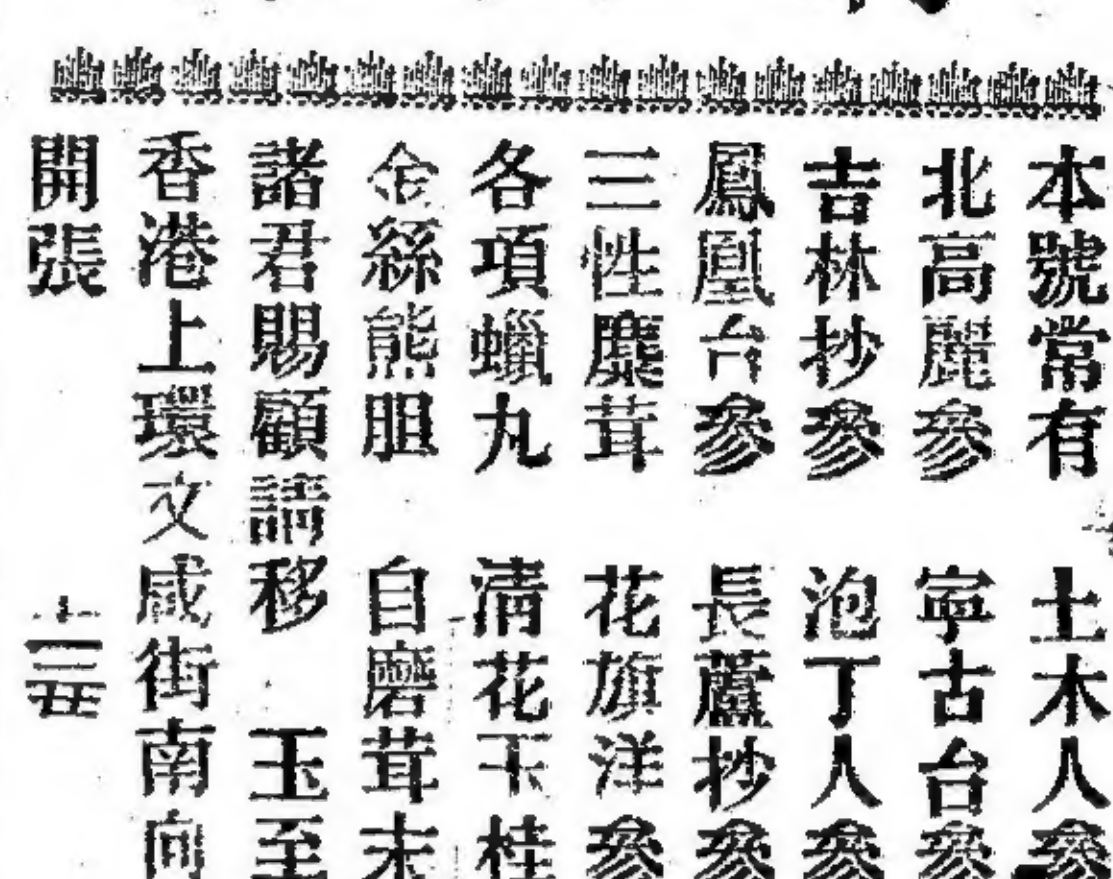 本號常有 土木人參
北高麗參 寧古台參
吉林抄參 泡丁人參
鳳凰台參 長蘆抄參
三性麋茸 花旗洋參
各項蠟丸 清花玉桂
金絲熊胆 自磨茸末
諸君賜顧請移 玉至
香港上環文咸街南向
開張